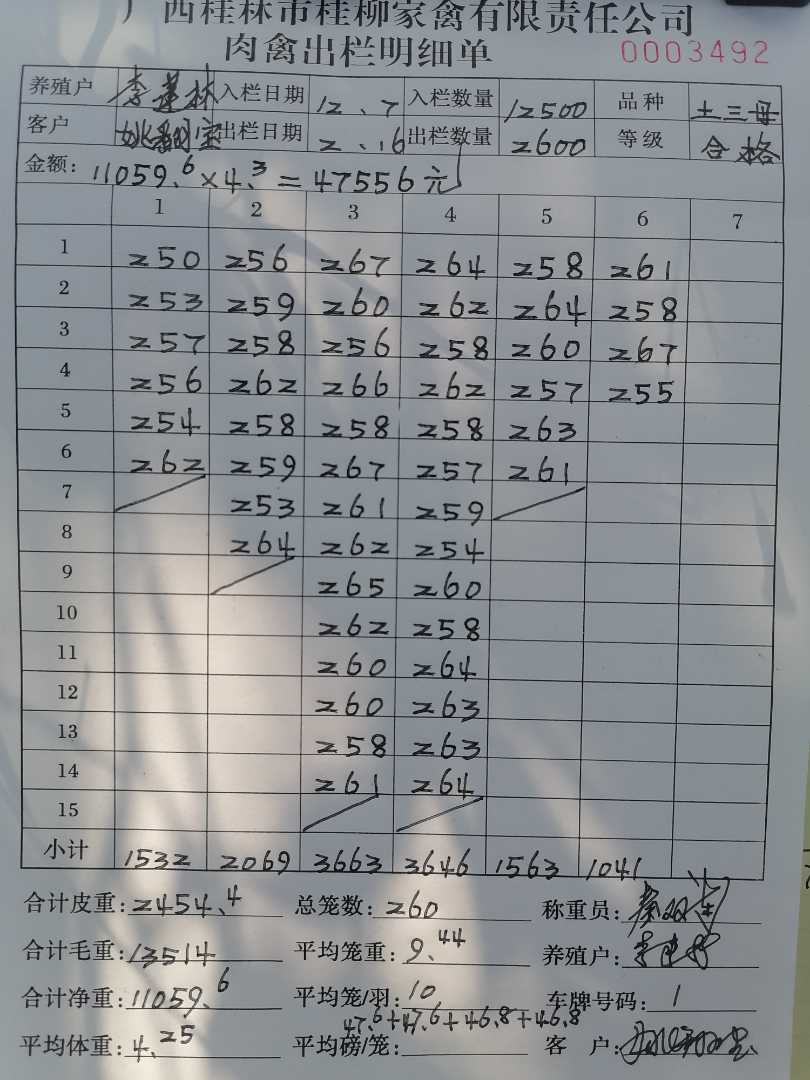 广西桂林市桂柳家禽有限责任公司
肉禽出栏明细单 0003492
养殖户 李 林 入栏日期 12、7 入栏数量 12500 品种 土三母
客户 姚 宝 出栏日期 2、16 出栏数量 2600 等级 合格
金额: 11059.6×4.3=47556元
1 2 3 4 5 6 7
1 250 256 267 264 258 261
2 253 259 260 262 264 258
3 257 258 256 258 260 267
4 256 262 266 262 257 255
5 254 258 258 258 263
6 262 259 267 257 261
7 253 261 259
8 264 262 254
9 265 260
10 262 258
11 260 264
12 260 263
13 258 263
14 261 264
15
小计 1532 2069 3663 3646 1563 1041
合计皮重: 2454.4 总笼数: 260 称重员:
合计毛重: 13514 平均笼重: 9.44 养殖户:
合计净重: 11059.6 平均笼/羽: 10 车牌号码: 1
47.6+47.6+46.8+46.8
平均体重: 4.25 平均磅/笼: 客户: